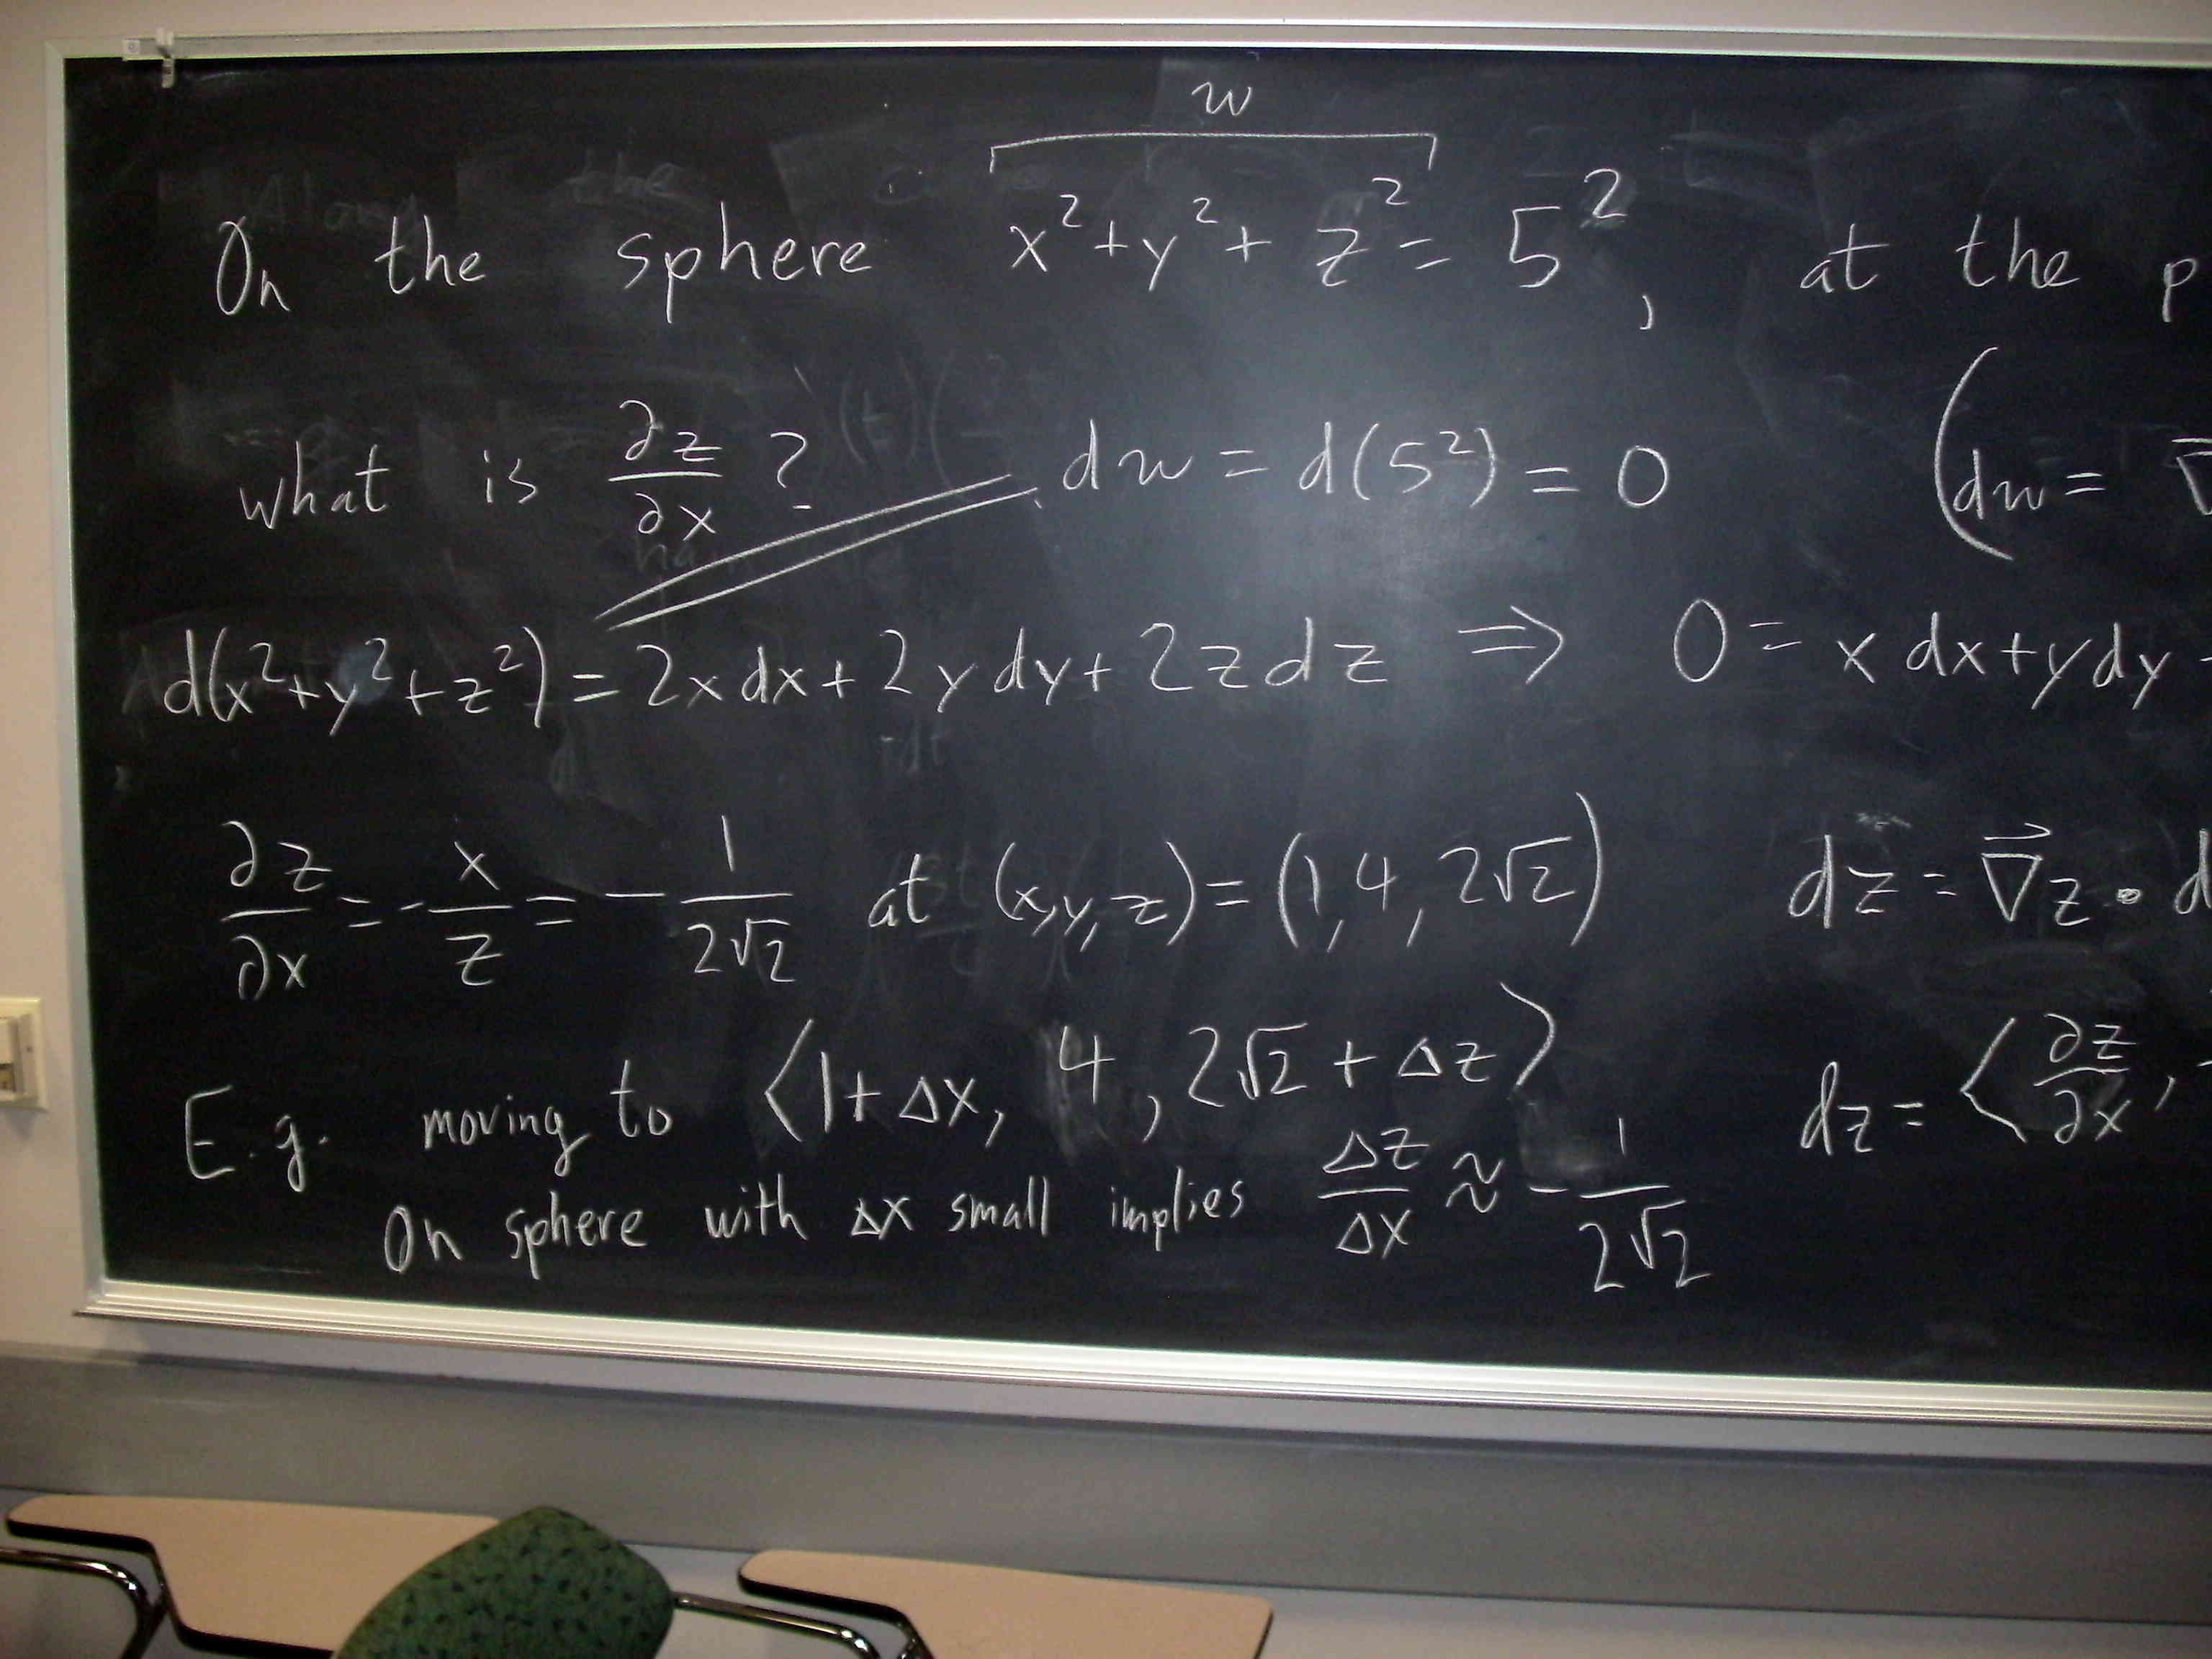 w
On the sphere x²+y²+z² = 5², at the p
what is ∂z/∂x? dw = d(5²) = 0 (dw = ∇
d(x²+y²+z²) = 2x dx + 2y dy + 2z dz ⇒ 0 = x dx + y dy
∂z/∂x = -x/z = -1/(2√2) at (x,y,z) = (1,4,2√2) dz = ∇⃗z • d
E.g. moving to ⟨1+Δx, 4, 2√2+Δz⟩ dz = ⟨∂z/∂x,
On sphere with Δx small implies Δz/Δx ≈ -1/(2√2)